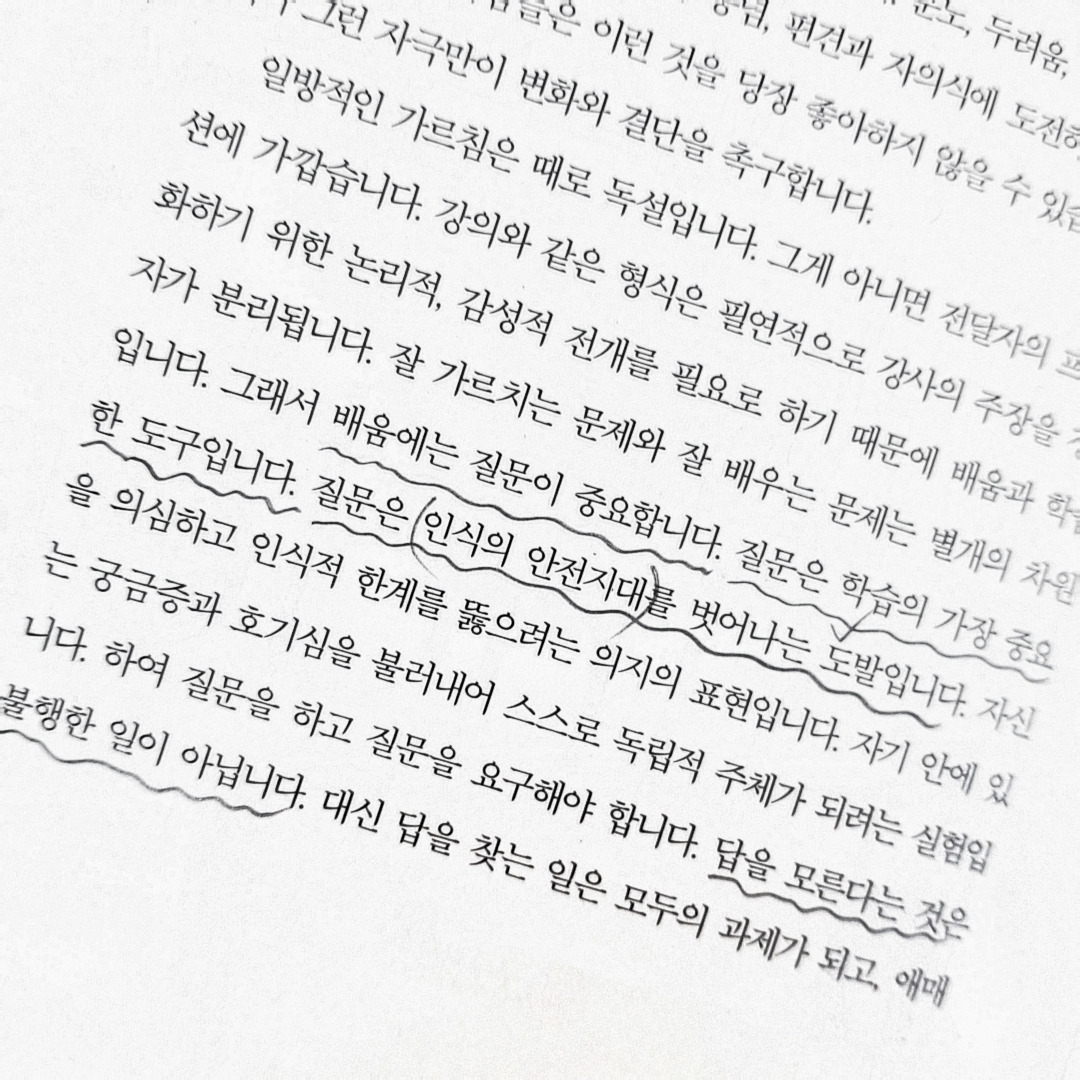 두려움,
편견과 자의식에
이런 것을 당장 좋아하지 않을 수
그런 자극만이 변화와 결단을 촉구합니다.
일방적인 가르침은 때로 독설입니다. 그게 아니면 전달자의
션에 가깝습니다. 강의와 같은 형식은 필연적으로 강사의 주장을
화하기 위한 논리적, 감성적 전개를 필요로 하기 때문에 배움과 학습
자가 분리됩니다. 잘 가르치는 문제와 잘 배우는 문제는 별개의 차원
입니다. 그래서 배움에는 질문이 중요합니다. 질문은 학습의 가장 중요
한 도구입니다. 질문은 (인식의 안전지대)를 벗어나는 도발입니다. 자신
을 의심하고 인식적 한계를 뚫으려는 의지의 표현입니다. 자기 안에 있
는 궁금증과 호기심을 불러내어 스스로 독립적 주체가 되려는 실험입
니다. 하여 질문을 하고 질문을 요구해야 합니다. 답을 모른다는 것은
불행한 일이 아닙니다. 대신 답을 찾는 일은 모두의 과제가 되고, 애매